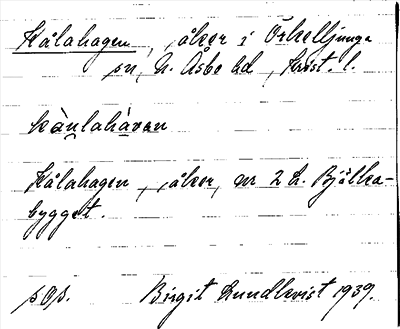 Kålahagen, åker i Örkelljunga
sn, N. Åsbo hd, Krist. l.
kàulahàvan
Kålahagen, åker, nr 2 L. Bjälka-
bygget.
pOp. Birgit Lundkvist 1939.